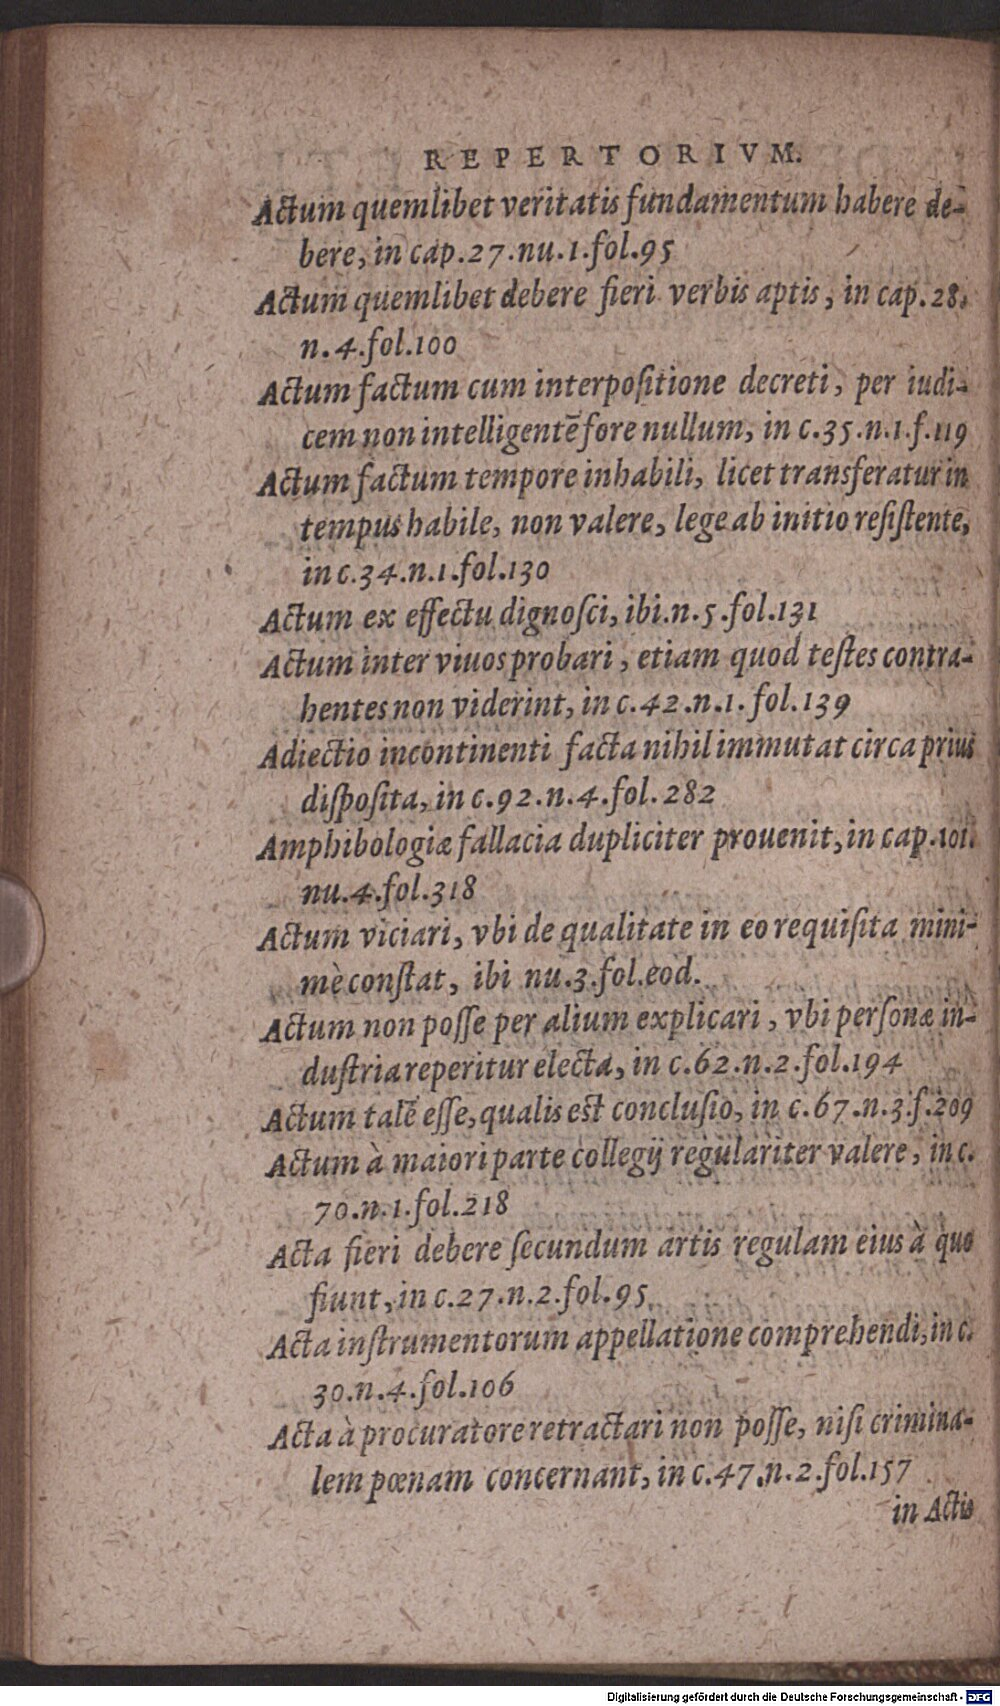 REPERTORIVM.
Actum quemlibet veritatis fundamentum habere de-
bere, in cap.27.nu.1.fol.95
Actum quemlibet debere fieri verbis aptis, in cap.28.
n.4.fol.100
Actum factum cum interpoſitione decreti, per iudi-
cem non intelligentē fore nullum, in c.35.n.1.f.119
Actum factum tempore inhabili, licet transferatur in
tempus habile, non valere, lege ab initio reſiſtente,
in c.34.n.1.fol.130
Actum ex effectu dignoſci, ibi.n.5.fol.131
Actum inter viuos probari, etiam quod teſtes contra-
hentes non viderint, in c.42.n.1.fol.139
Adiectio incontinenti facta nihil immutat circa prius
diſpoſita, in c.92.n.4.fol.282
Amphibologiæ fallacia dupliciter prouenit, in cap.101.
nu.4.fol.318
Actum viciari, vbi de qualitate in eo requiſita mini-
mè conſtat, ibi nu.3.fol.eod.
Actum non poſſe per alium explicari, vbi perſonæ in-
duſtria reperitur electa, in c.62.n.2.fol.194
Actum talē eſſe, qualis eſt concluſio, in c.67.n.3.f.209
Actum à maiori parte collegij regulariter valere, in c.
70.n.1.fol.218
Acta fieri debere ſecundum artis regulam eius à quo
fiunt, in c.27.n.2.fol.95
Acta inſtrumentorum appellatione comprehendi, in c.
30.n.4.fol.106
Acta à procuratore retractari non poſſe, niſi crimina-
lem pœnam concernant, in c.47.n.2.fol.157
in Actis
Digitalisierung gefördert durch die Deutsche Forschungsgemeinschaft - DFG